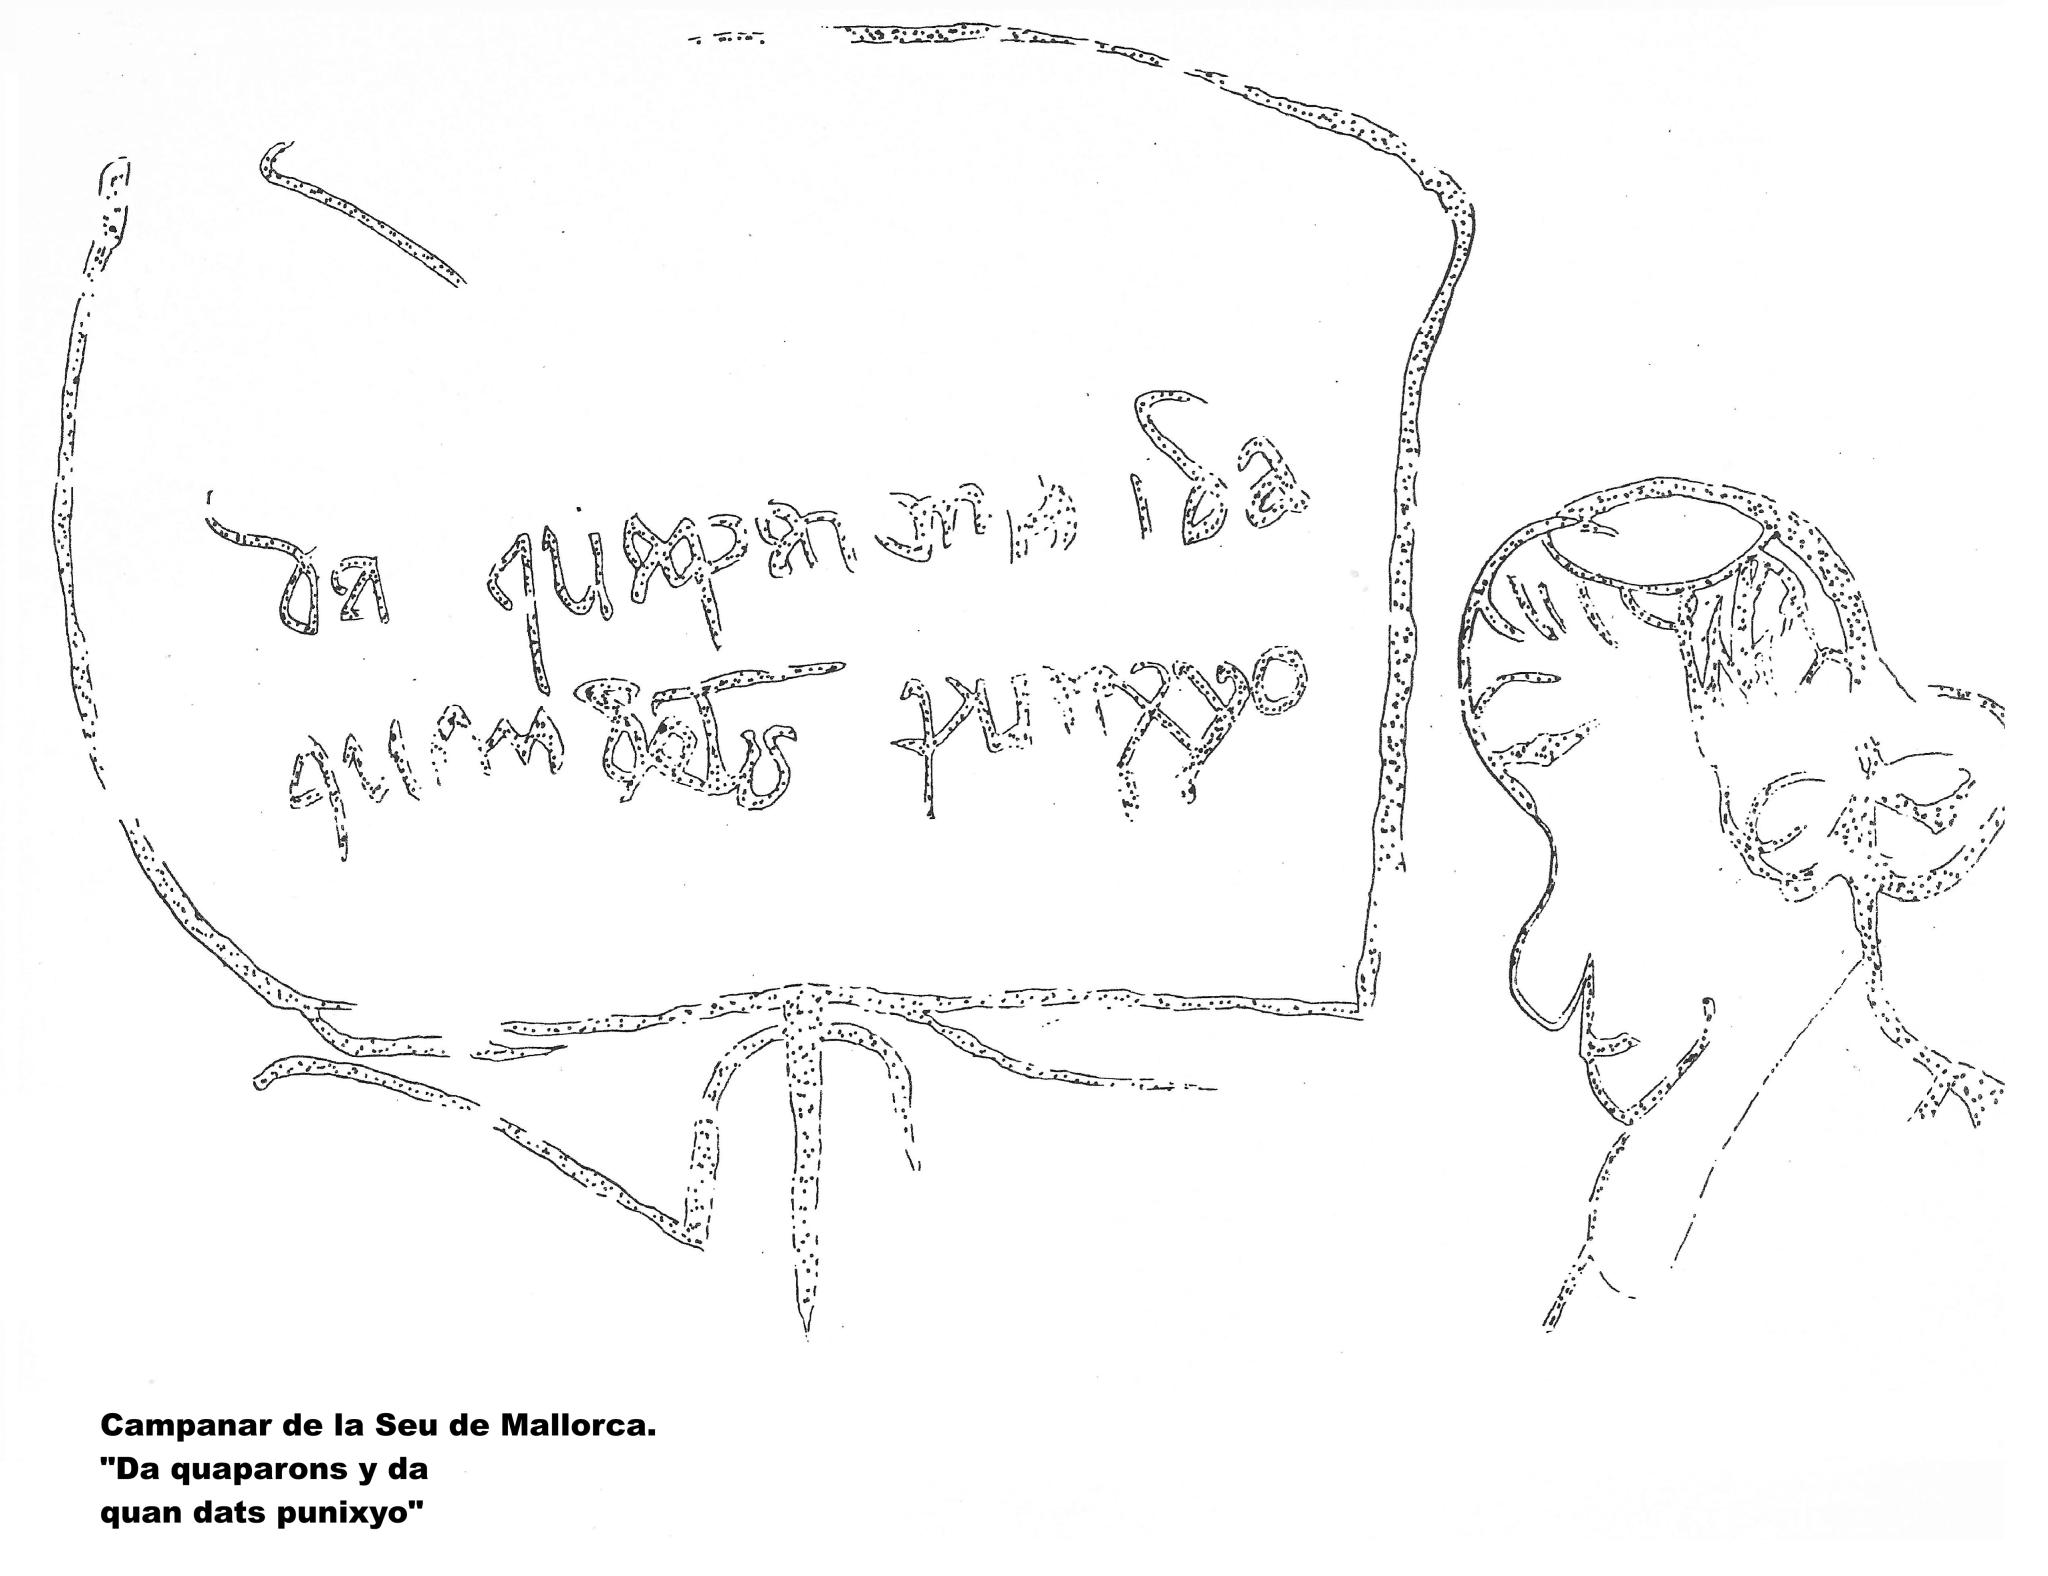 da quaparons y da
quan dats punixyo
Campanar de la Seu de Mallorca.
"Da quaparons y da
quan dats punixyo"